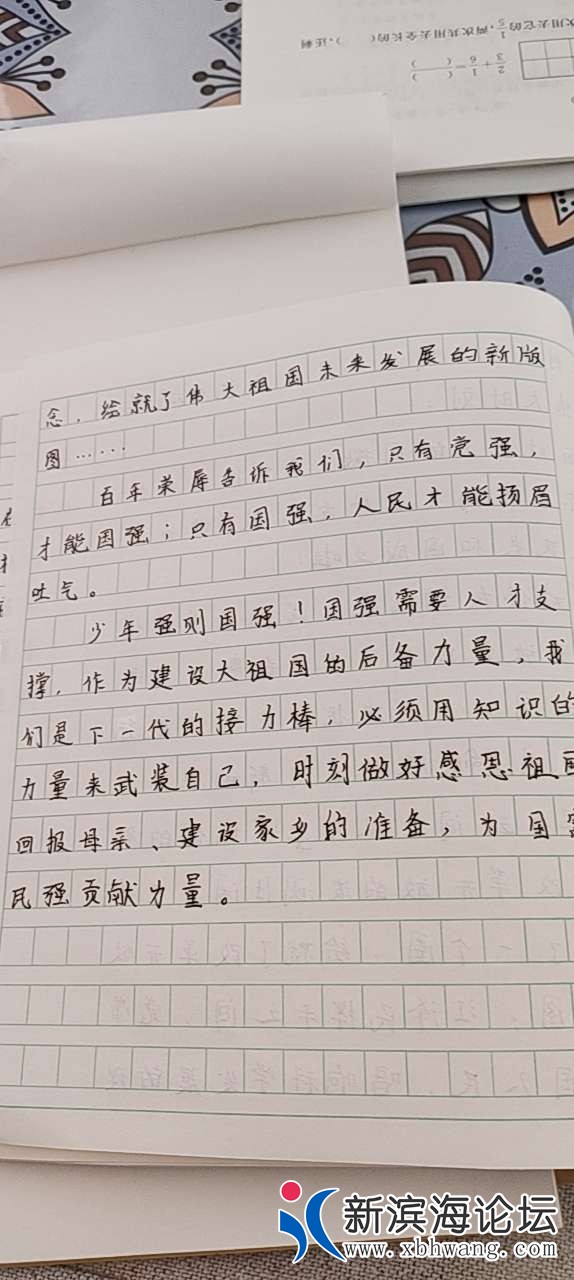 次用去它的1/5,两次共用去全长的( ),还剩
2/3+1/6=( )/( )
念,给就了伟大祖国未来发展的新版
图……
百年荣辱告诉我们,只有党强,
才能国强;只有国强,人民才能扬眉
吐气。
少年强则国强!国强需要人才支
撑,作为建设大祖国的后备力量,我
们是下一代的接力棒,必须用知识的
力量来武装自己,时刻做好感恩祖国
回报母亲、建设家乡的准备,为国富
民强贡献力量。
新滨海论坛
www.xbhwang.com